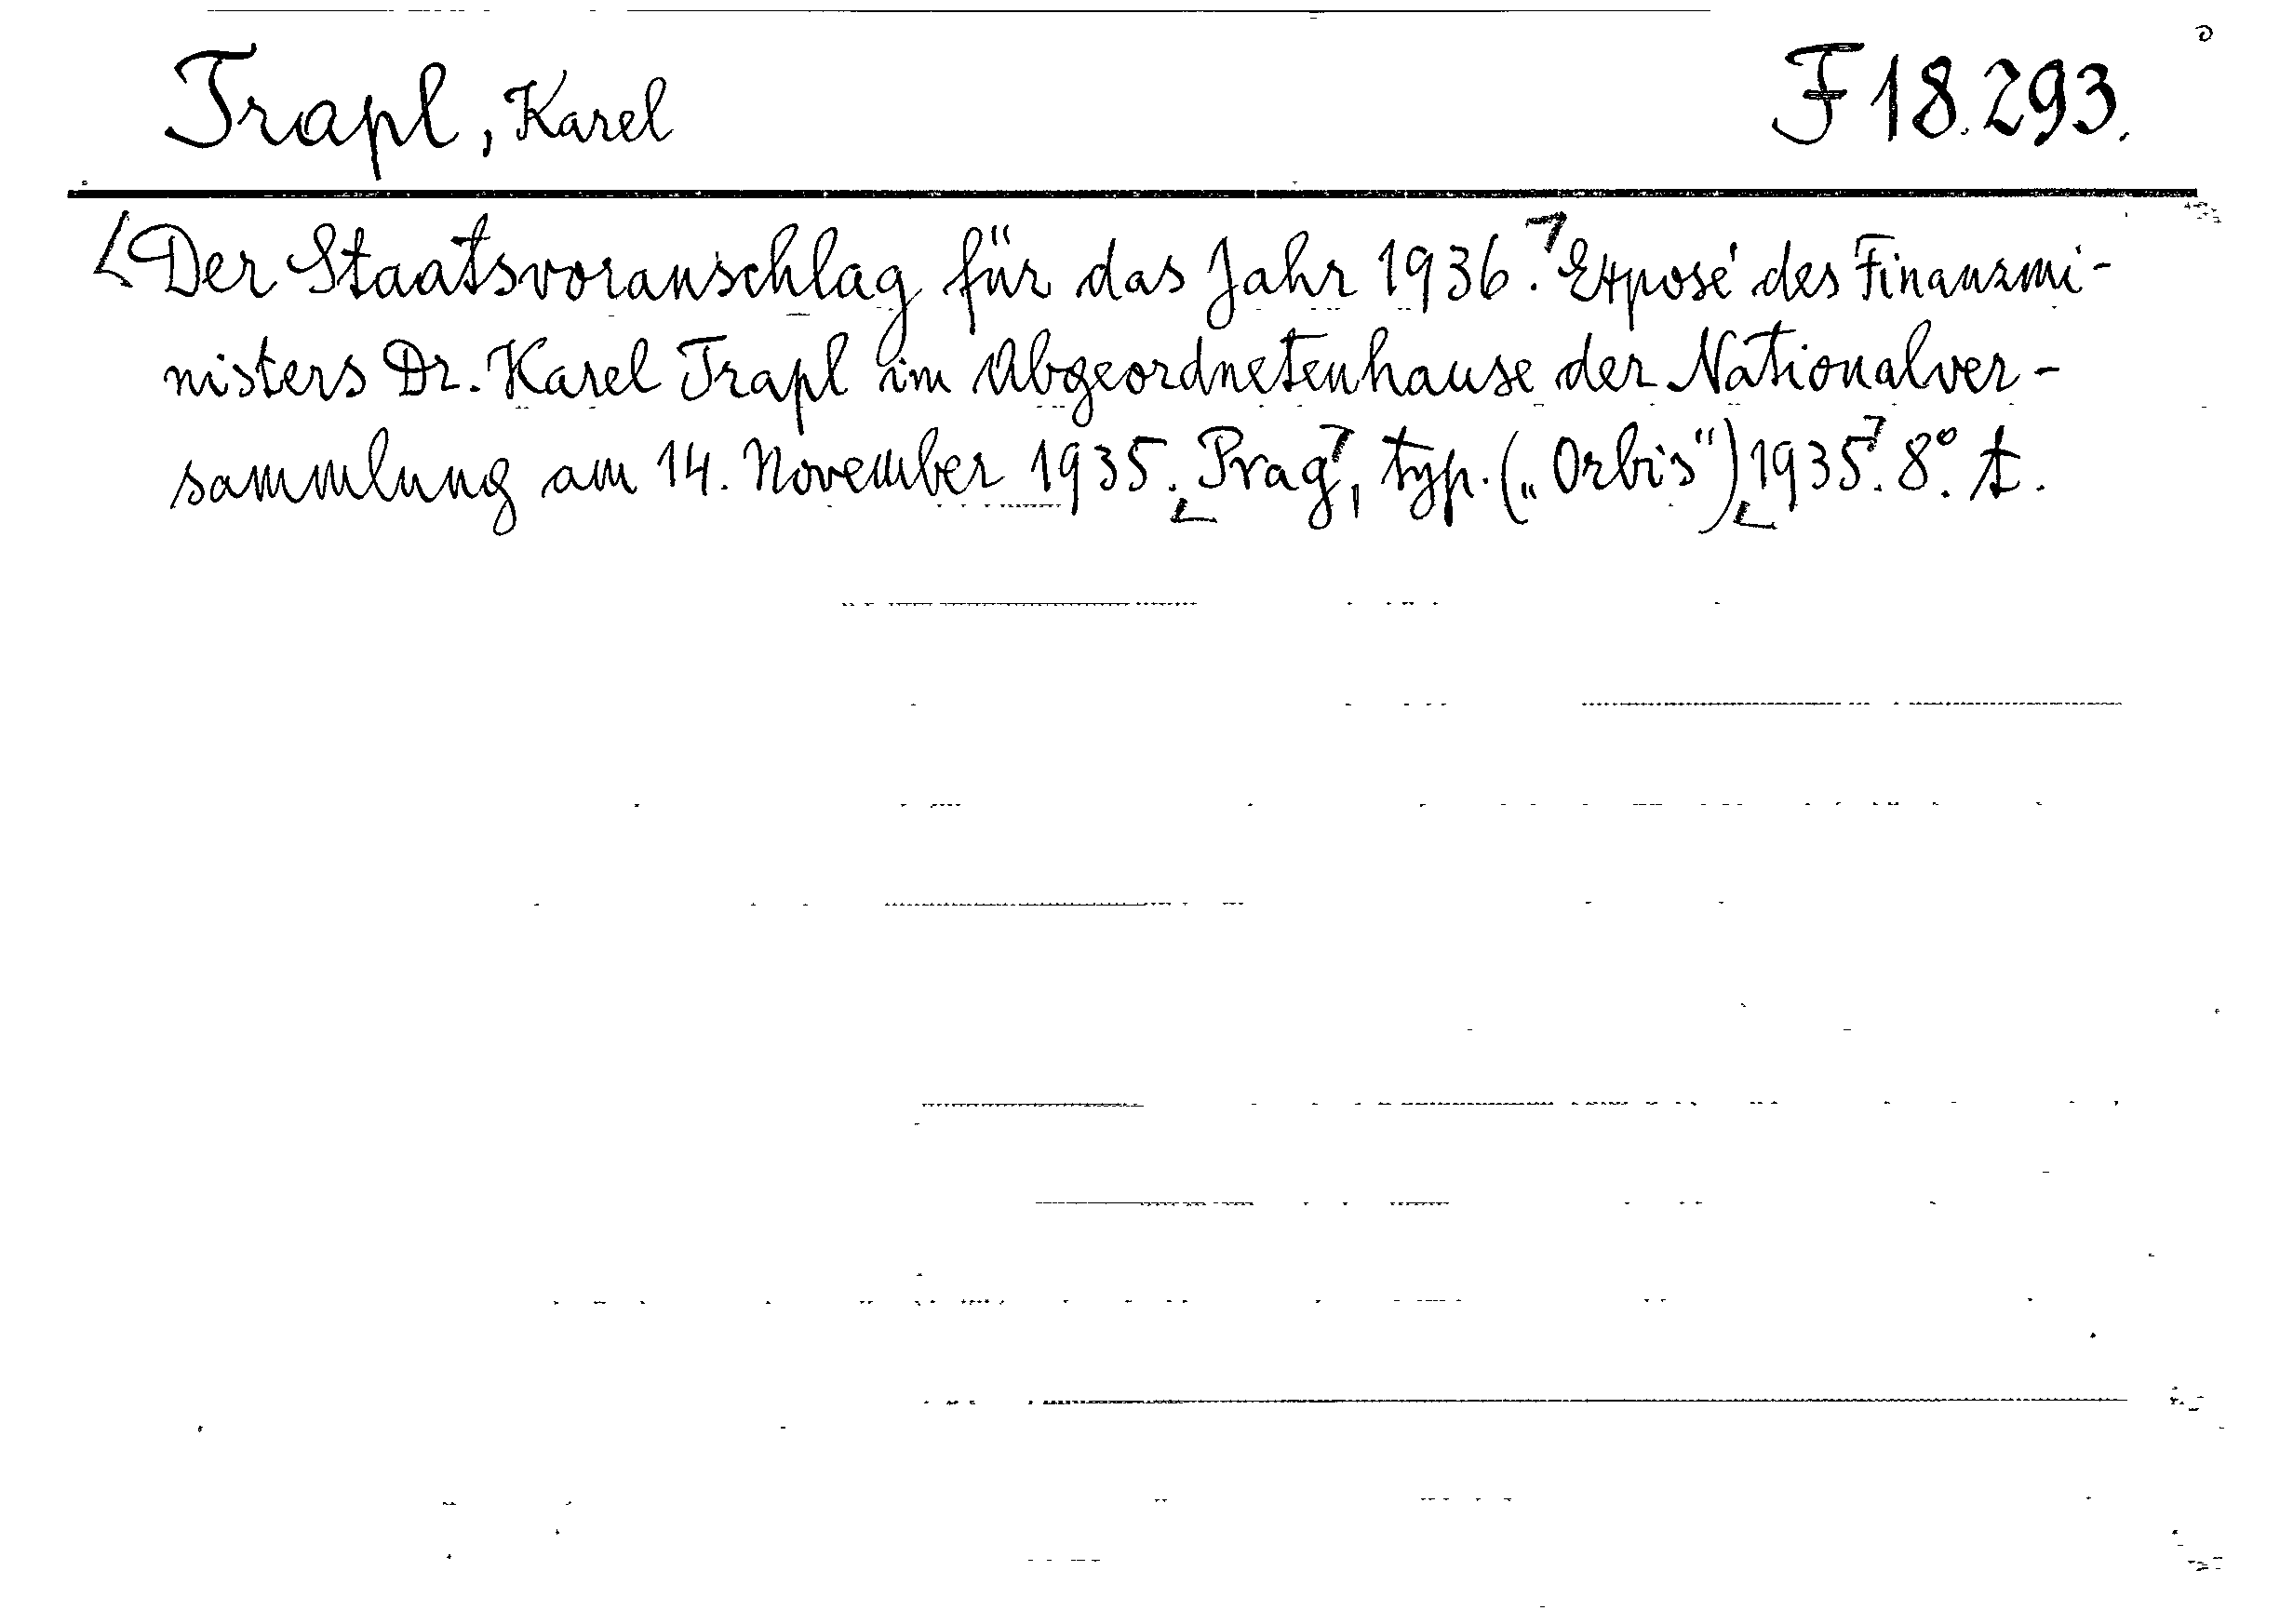 Trapl, Karel F 18.293.
Der Staatsvoranschlag für das Jahr 1936. Exposé des Finanzmi-
nisters Dr. Karel Trapl im Abgeordnetenhause der Nationalver-
sammlung am 14. November 1935. Prag, typ. („Orbis“) 1935. 8°. t.